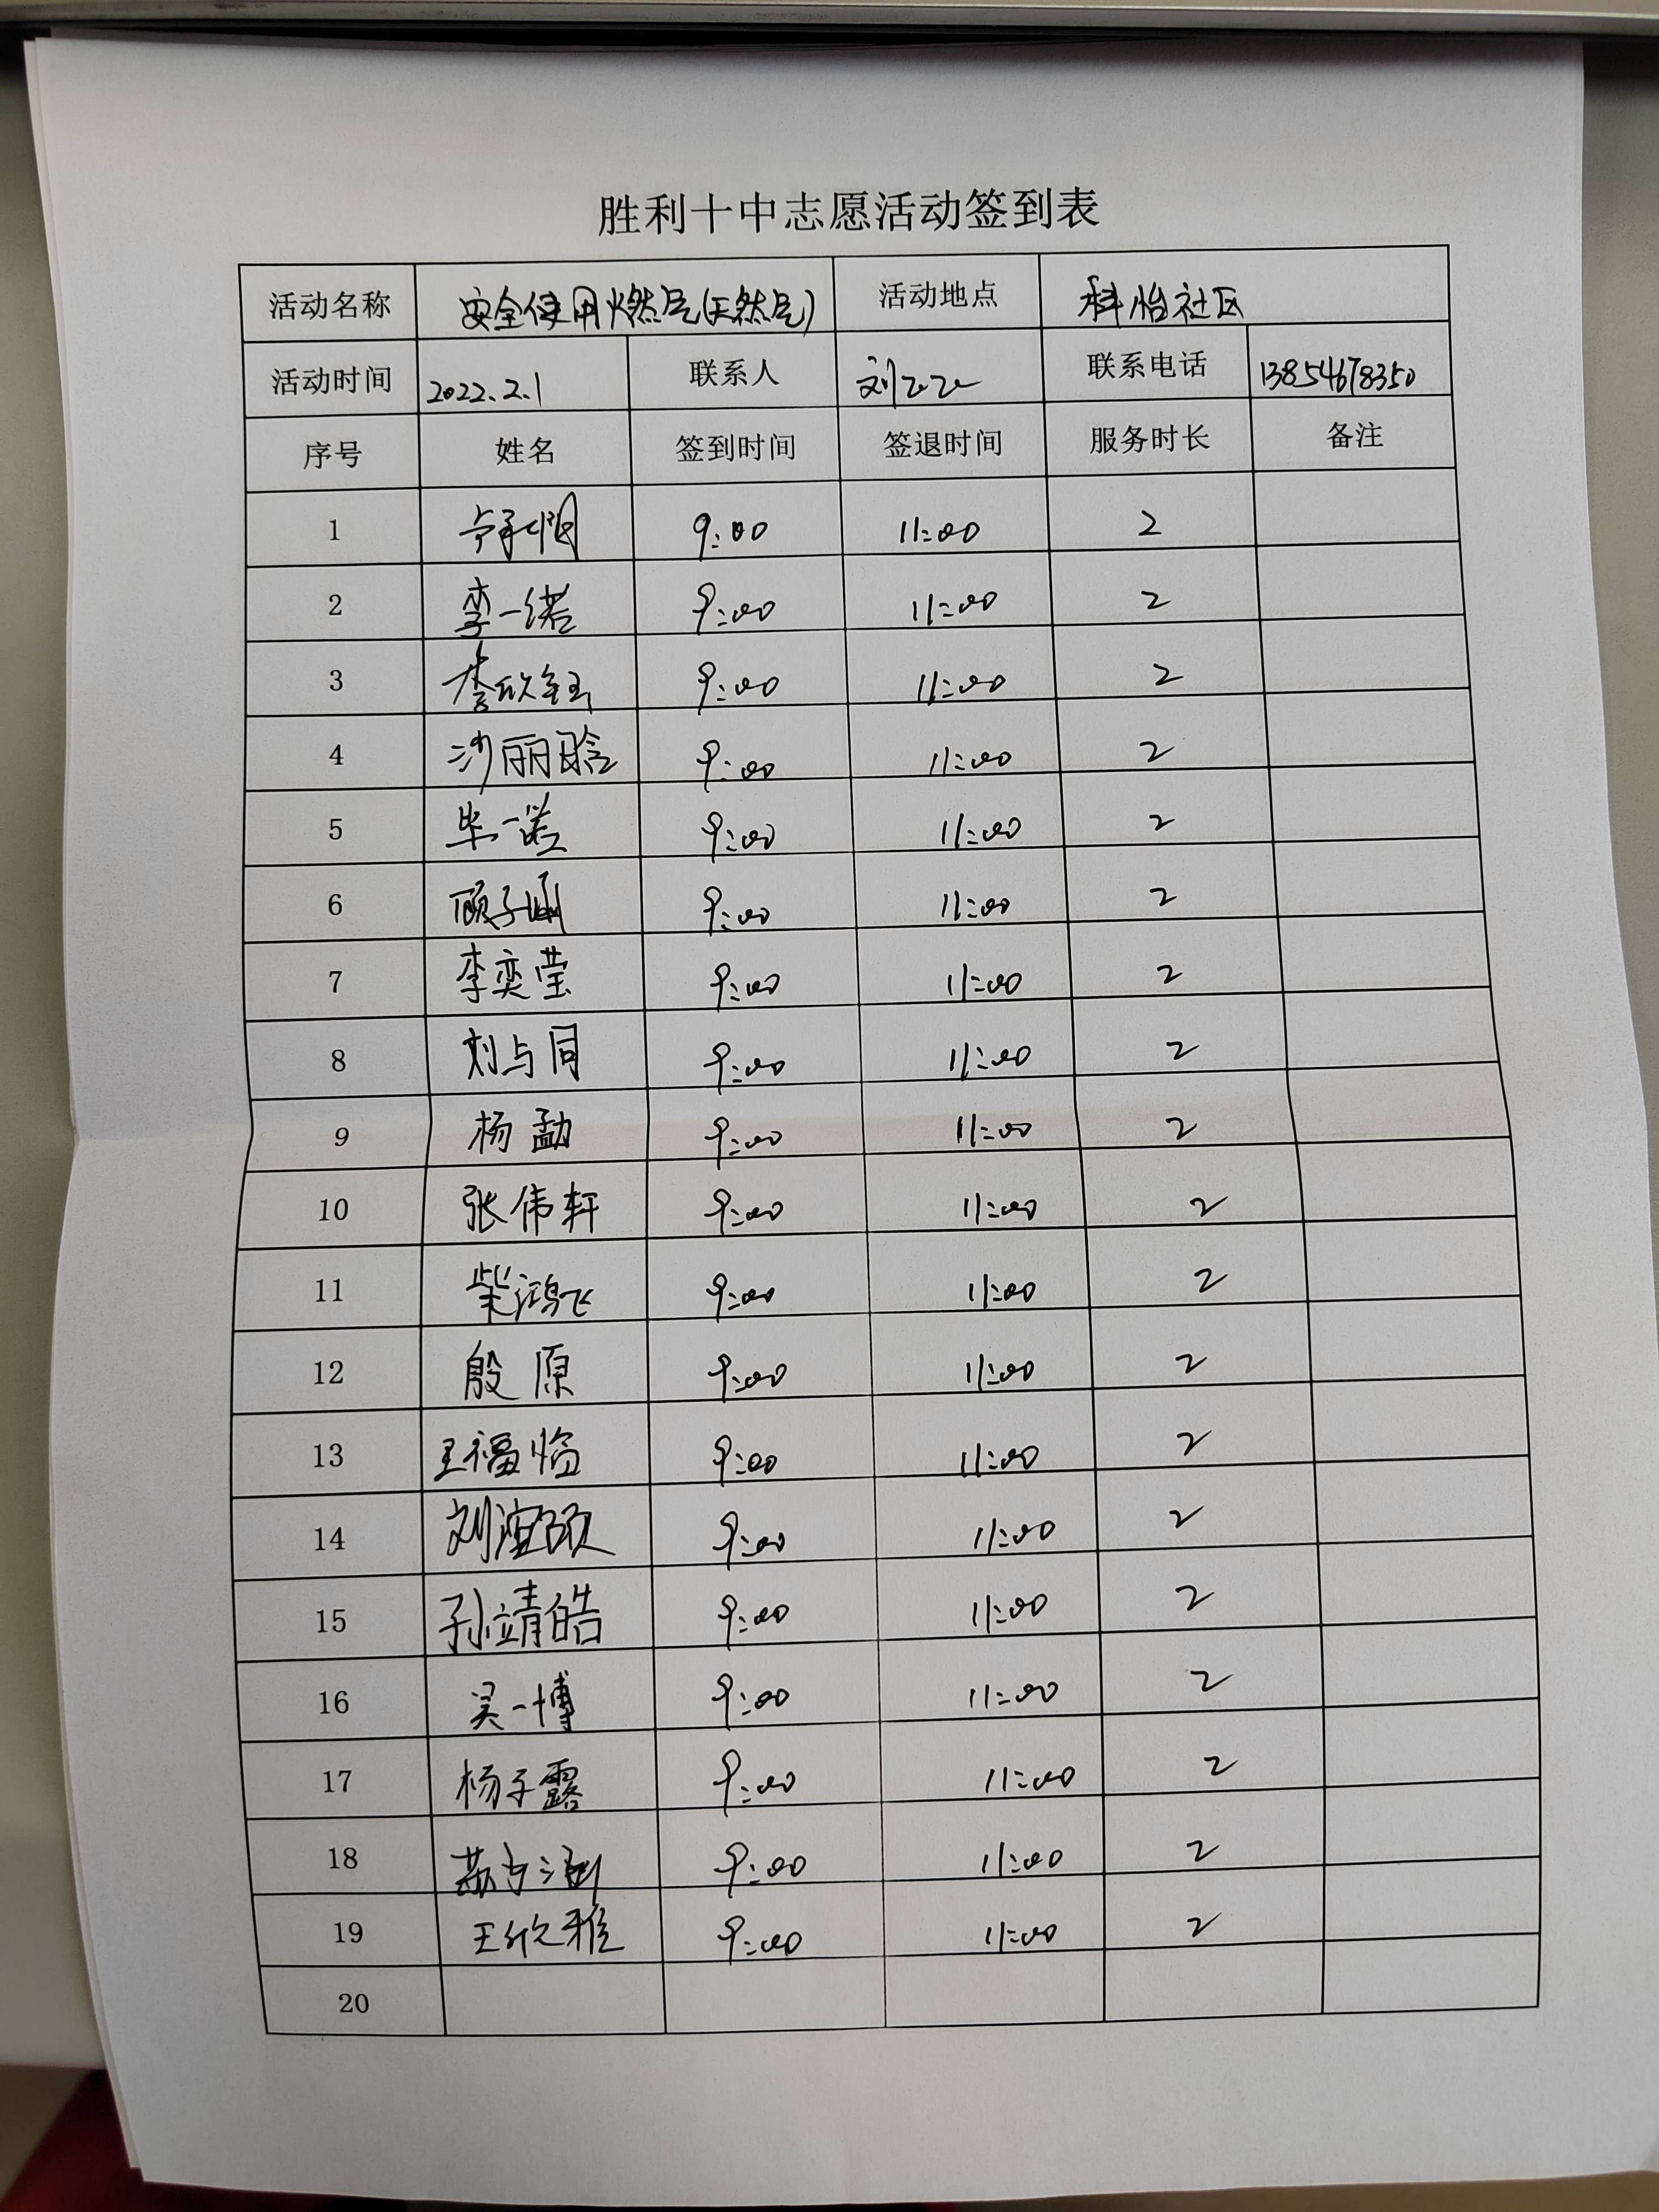 胜利十中志愿活动签到表
活动名称 安全使用燃气(天然气) 活动地点 科怡社区
活动时间 2022.2.1 联系人 刘 联系电话 13854678350
序号 姓名 签到时间 签退时间 服务时长 备注
1 9:00 11:00 2
2 李一诺 9:00 11:00 2
3 李欣钰 9:00 11:00 2
4 沙丽晗 9:00 11:00 2
5 毕一诺 9:00 11:00 2
6 顾子涵 9:00 11:00 2
7 李奕莹 9:00 11:00 2
8 刘与同 9:00 11:00 2
9 杨孟勋 9:00 11:00 2
10 张伟轩 9:00 11:00 2
11 柴鸿飞 9:00 11:00 2
12 殷原 9:00 11:00 2
13 王福临 9:00 11:00 2
14 刘 9:00 11:00 2
15 孙靖皓 9:00 11:00 2
16 吴一博 9:00 11:00 2
17 杨子露 9:00 11:00 2
18 9:00 11:00 2
19 王欣雅 9:00 11:00 2
20